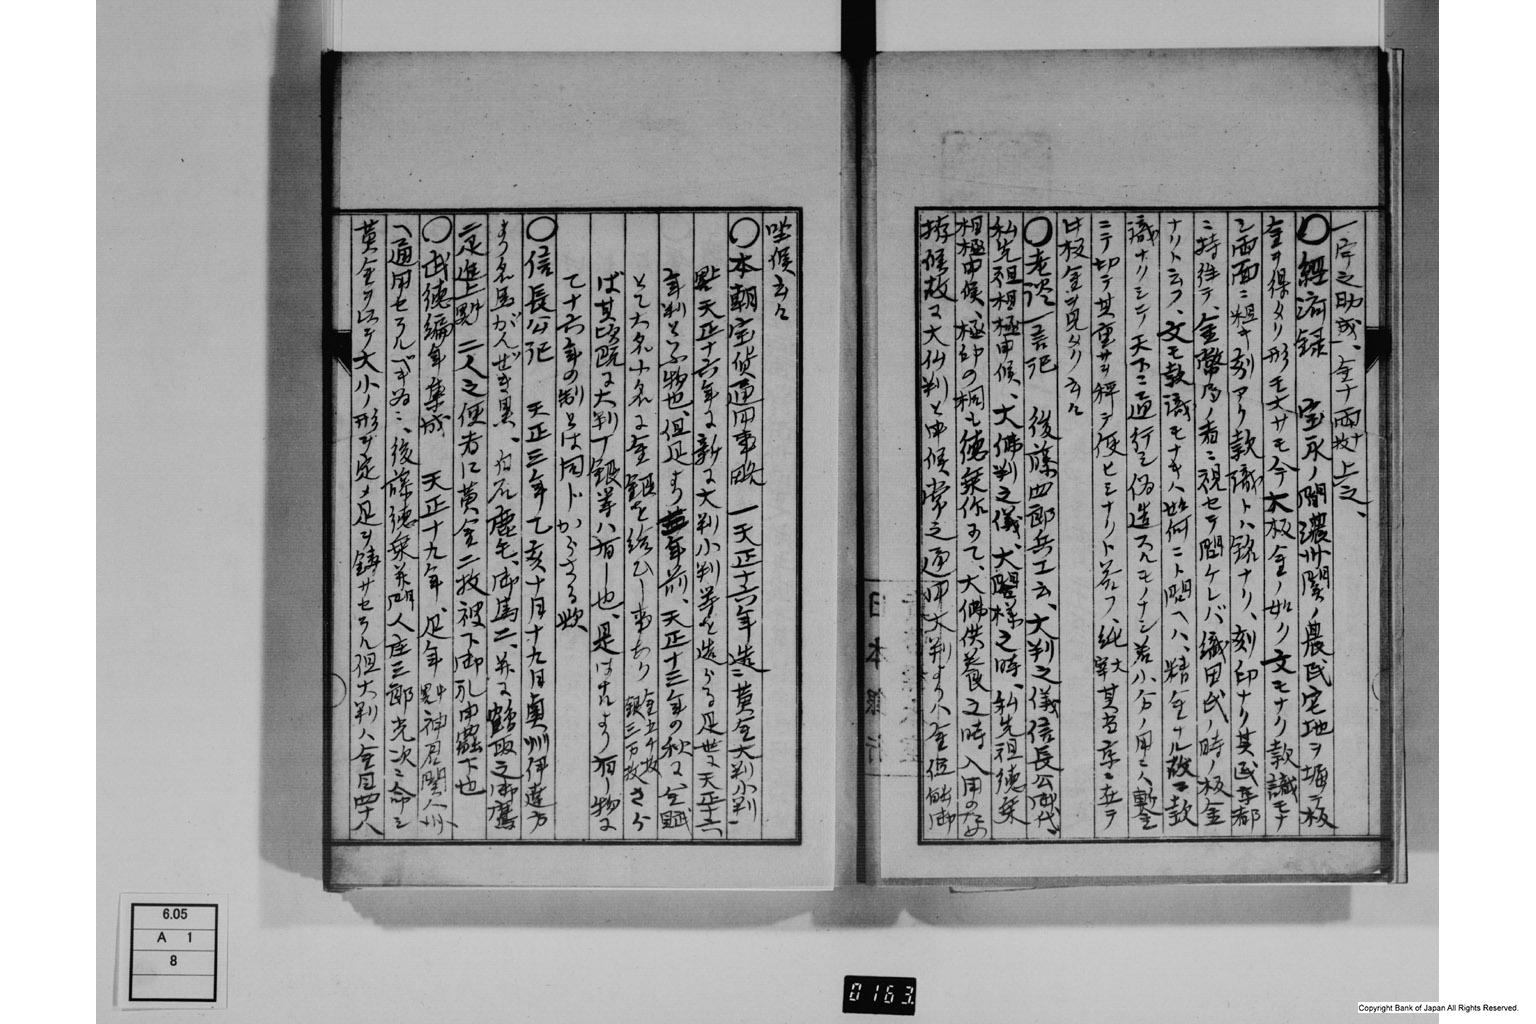 一、片之助成、金十両十枚上之、
〇經済録 宝永ノ間濃州関ノ農民宅地ヲ堀テ板
金ヲ得タリ形モ大サモ今ノ大板金ノ如ク文モナク款識モナ
シ両面ニ粗キ刻アリ款識トハ銘ナリ、刻印ナリ其民京都
ニ持往テ、金幣局ノ者ニ視セテ問ケレバ織田氏ノ時ノ板金
ナリト云フ、文モ款識モナキハ如何ニト問ヘハ、精金ナル故ニ款
識ナクシテ天下ニ通行シ偽造スルモノナシ若小分ノ用ニハ剪
ニテ切テ其重サヲ秤テ使ヒシナリト答フ、純
此板金ヲ見タリ云々
〇老談一言記 後藤四郎兵エ云、大判之儀信長公御代、
私先祖相極申候、大佛判之儀、大閤様之時、私先祖徳乗
相極申候、極印の桐も徳乗作にて、大佛供養之時入用のため
拵候故に大仏判と申候常之通用大判よりハ金位能御
坐候云々
〇本朝宝貨通用事略 一天正十六年造ニ黄金大判小判一
天正十六年に新に大判小判等を造らる是世に天正十六
年判といふ物也、但是より 年前、天正十三年の秋に公賦
とて大名小名に金銀を給ひし事あり金五千枚銀三万枚さら
ば其以前に大判丁銀等ハ有し也、是は古より有し物に
て十六年の制とは同ドからさる歟
〇信長公記 天正三年乙亥十月十九日奥州伊達方
より名馬がんぜき黒、白石鹿毛、御馬二、并に鶴取之御鷹
二足進上 二人之使者に黄金二枚被下御礼申罷下也
〇武徳編年集成 天正十九年、是年 神君関八州
ヘ通用セラルベキ為ニ、後藤徳乗并門人庄三郎光次ニ命シ
黄金ヲ以テ大小ノ形ヲ定メ是ヲ鋳サセラル但大判ハ金目四十八
6.05
A 1
8
0163
日本銀行
Copyright Bank of Japan All Rights Reserved.